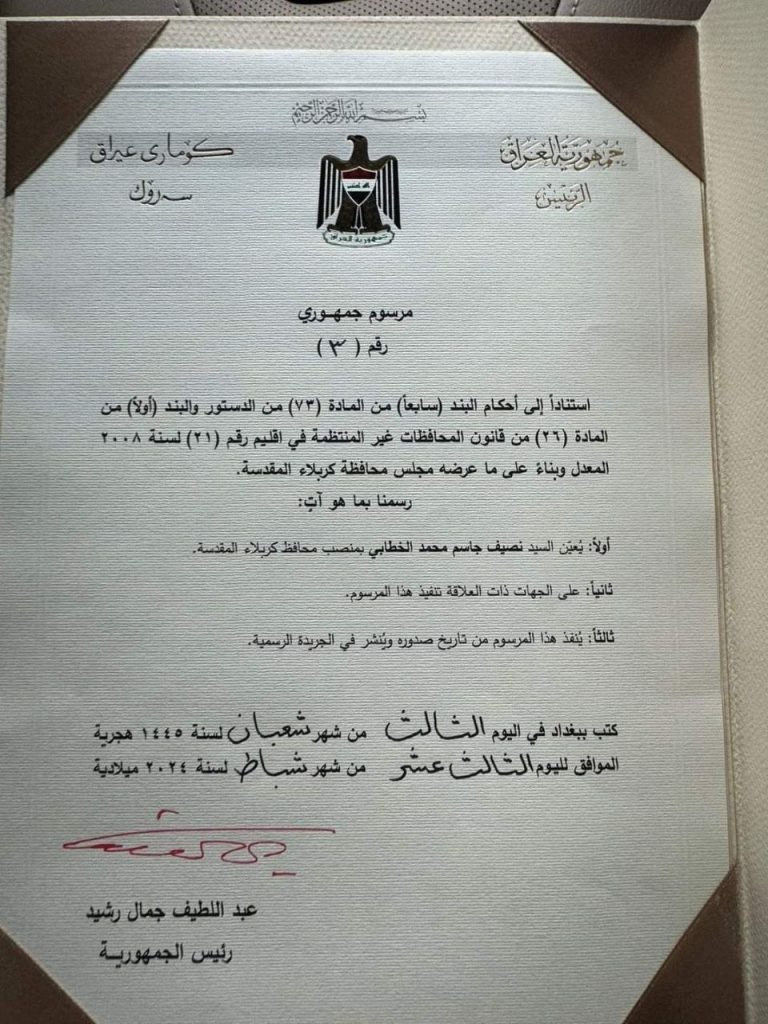 بسم الله الرحمن الرحيم
جمهورية العراق
الرئيس
كۆماری عیراق
سەرۆك
جمهورية العراق
مرسوم جمهـوري
رقم ( ٣ )
استناداً إلى أحكام البند (سابعاً) من المادة (٧٣) من الدستور والبند (أولاً) من
المادة (٢٦) من قانون المحافظات غير المنتظمة في اقليم رقم (٢١) لسنة ٢٠٠٨
المعدل وبناءً على ما عرضه مجلس محافظة كربلاء المقدسة.
رسمنا بما هو آتٍ:
أولاً: يُعيّن السيد نصيف جاسم محمد الخطابي بمنصب محافظ كربلاء المقدسة.
ثانياً: على الجهات ذات العلاقة تنفيذ هذا المرسوم.
ثالثاً: يُنفذ هذا المرسوم من تاريخ صدوره ويُنشر في الجريدة الرسمية.
كتب ببغداد في اليوم الثالث من شهر شعبان لسنة ١٤٤٥ هجرية
الموافق لليوم الثالث عشر من شهر شباط لسنة ٢٠٢٤ ميلادية
عبد اللطيف جمال رشيد
رئيس الجمهوريــة